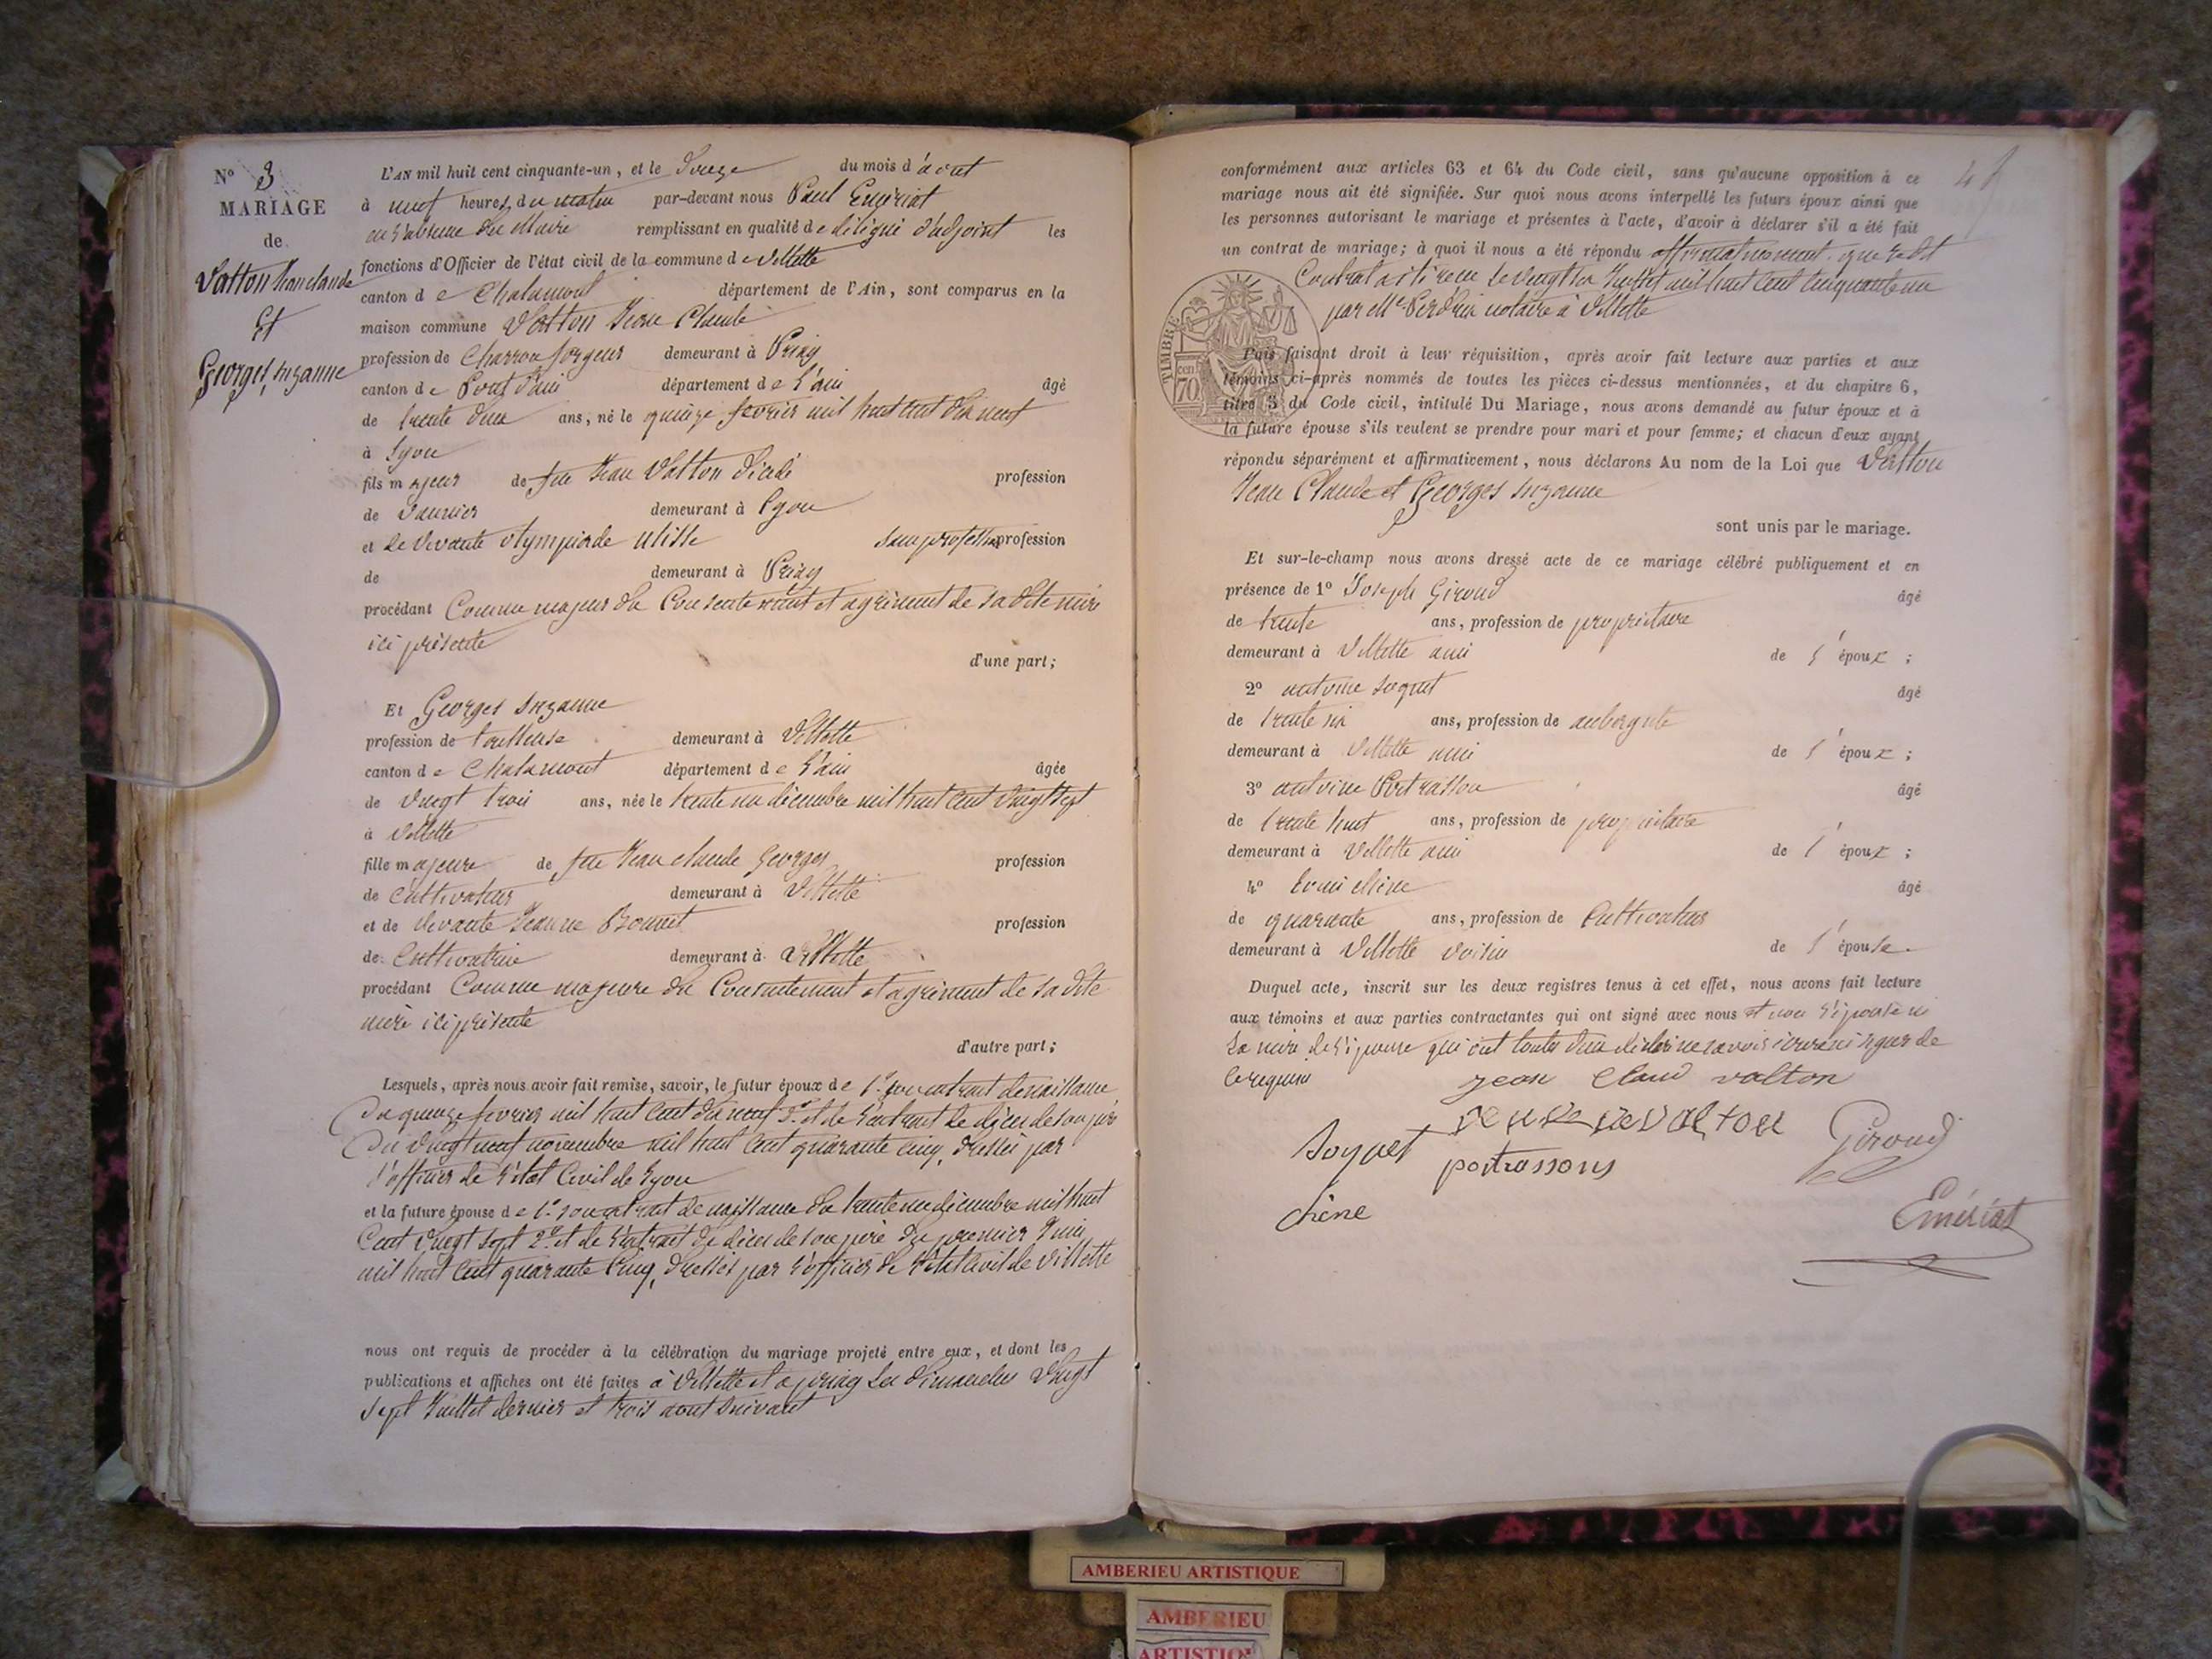 N° 3
MARIAGE
de
Vatton Jean claude
Et
Georges, Suzanne
L'AN mil huit cent cinquante-un, et le Douze du mois d'aout
à neuf heures du matin par-devant nous Paul
en l'absence du Maire remplissant en qualité de délégué d'adjoint les
fonctions d'Officier de l'état civil de la commune de Villette
canton de Chalamont département de l'Ain, sont comparus en la
maison commune Vatton Jean Claude
profession de Charron forgeur demeurant à Priay
canton de Pont d'ain département de l'ain âgé
de trente deux ans, né le quinze fevrier mil huit cent dix neuf
à Lyon
fils majeur de feu Jean Vatton Décédé profession
de Vannier demeurant à Lyon
et de Vivante olympiade ulisse sans profession profession
de demeurant à Priay
procédant Comme majeur du Consentement et agrément de sa dite mère
ici présente
d'une part;
Et Georges Suzanne
profession de tailleuse demeurant à Villette
canton de Chalamont département de l'ain âgée
de vingt trois ans, née le trente un décembre mil huit cent vingt sept
à Villette
fille majeure de feu Jean claude Georges profession
de cultivateur demeurant à Villette
et de vivante Jeanne Bonnet profession
de Cultivatrice demeurant à Villette
procédant Comme majeure du Consentement et agrément de sa dite
mère ici présente
d'autre part;
Lesquels, après nous avoir fait remise, savoir, le futur époux de 1° son extrait de naissance
du quinze fevrier mil huit cent dix neuf 2° et de l'extrait de décès de son père
du vingt neuf novembre mil huit cent quarante cinq, dressés par
l'officier de l'état Civil de Lyon
et la future épouse de 1° son extrait de naissance du trente un décembre mil huit
Cent vingt sept 2° et de l'extrait de décès de son père du premier Juin
mil huit cent quarante Cinq, dressés par l'officier de l'état civil de Villette
nous ont requis de procéder à la célébration du mariage projeté entre eux, et dont les
publications et affiches ont été faites à Villette et a priay les dimanches vingt
sept Juillet dernier et trois aout suivant
conformément aux articles 63 et 64 du Code civil, sans qu'aucune opposition à ce
mariage nous ait été signifiée. Sur quoi nous avons interpellé les futurs époux ainsi que
les personnes autorisant le mariage et présentes à l'acte, d'avoir à déclarer s'il a été fait
un contrat de mariage; à quoi il nous a été répondu affirmativement que ledit
Contrat a été recu le vingt Juillet mil huit Cent Cinquante un
par Me Perdrix notaire à Villette
TIMBRE
cen
70
Puis faisant droit à leur réquisition, après avoir fait lecture aux parties et aux
témoins ci-après nommés de toutes les pièces ci-dessus mentionnées, et du chapitre 6,
titre 5 du Code civil, intitulé Du Mariage, nous avons demandé au futur époux et à
la future épouse s'ils veulent se prendre pour mari et pour femme; et chacun d'eux ayant
répondu séparément et affirmativement, nous déclarons Au nom de la Loi que Vatton
Jean Claude et Georges Suzanne
sont unis par le mariage.
Et sur-le-champ nous avons dressé acte de ce mariage célébré publiquement et en
présence de 1° Joseph Giroud âgé
de trente ans, profession de propriétaire
demeurant à Villette ami de l'époux;
2° antoine soquet âgé
de trente six ans, profession de aubergiste
demeurant à Villette ami de l'époux;
3° antoine Portrasson âgé
de trente huit ans, profession de propriétaire
demeurant à Villette ami de l'époux;
4° chêne âgé
de quarante ans, profession de Cultivateur
demeurant à Villette voisin de l'épouse.
Duquel acte, inscrit sur les deux registres tenus à cet effet, nous avons fait lecture
aux témoins et aux parties contractantes qui ont signé avec nous et non l'épouse ni
la mère de l'épouse qui ont toutes deux déclaré ne savoir écrire ni signer de
ce requises
jean Claud valton
Soquet
portrassons
Giroud
chêne
Emériat
AMBERIEU ARTISTIQUE
AMBERIEU
ARTISTIQ